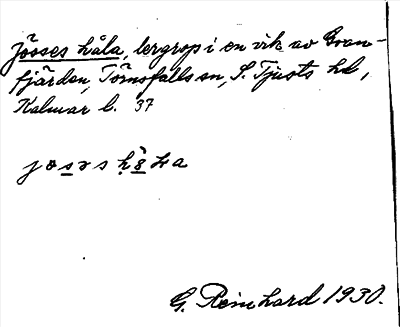 Jöoses håla, lergrop i en vik av Gran-
fjärden, Törnsfalls sn, S. Tjusts hd,
Kalmar l. 37
G. Reinhard 1930.